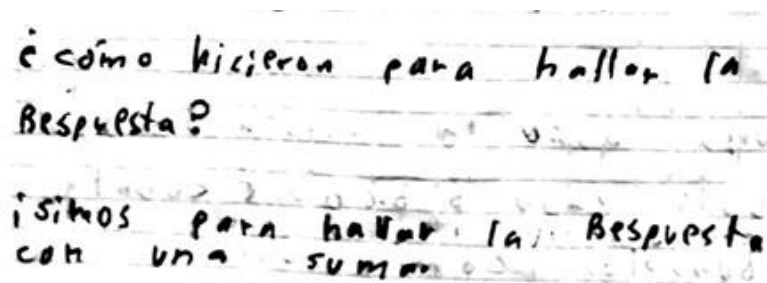 ¿cómo hicieron para hallar la
Bespuesta?
isimos para hallar la Bespuesta
con una suma